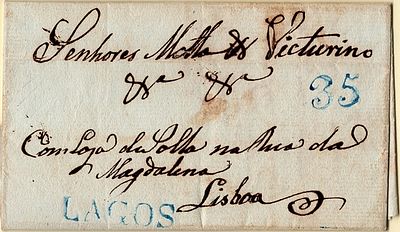 Senhores Motta & Victurino
&ª &ª
35
Com Loja de Solla na Rua da
Magdalena
Lisboa
LAGOS